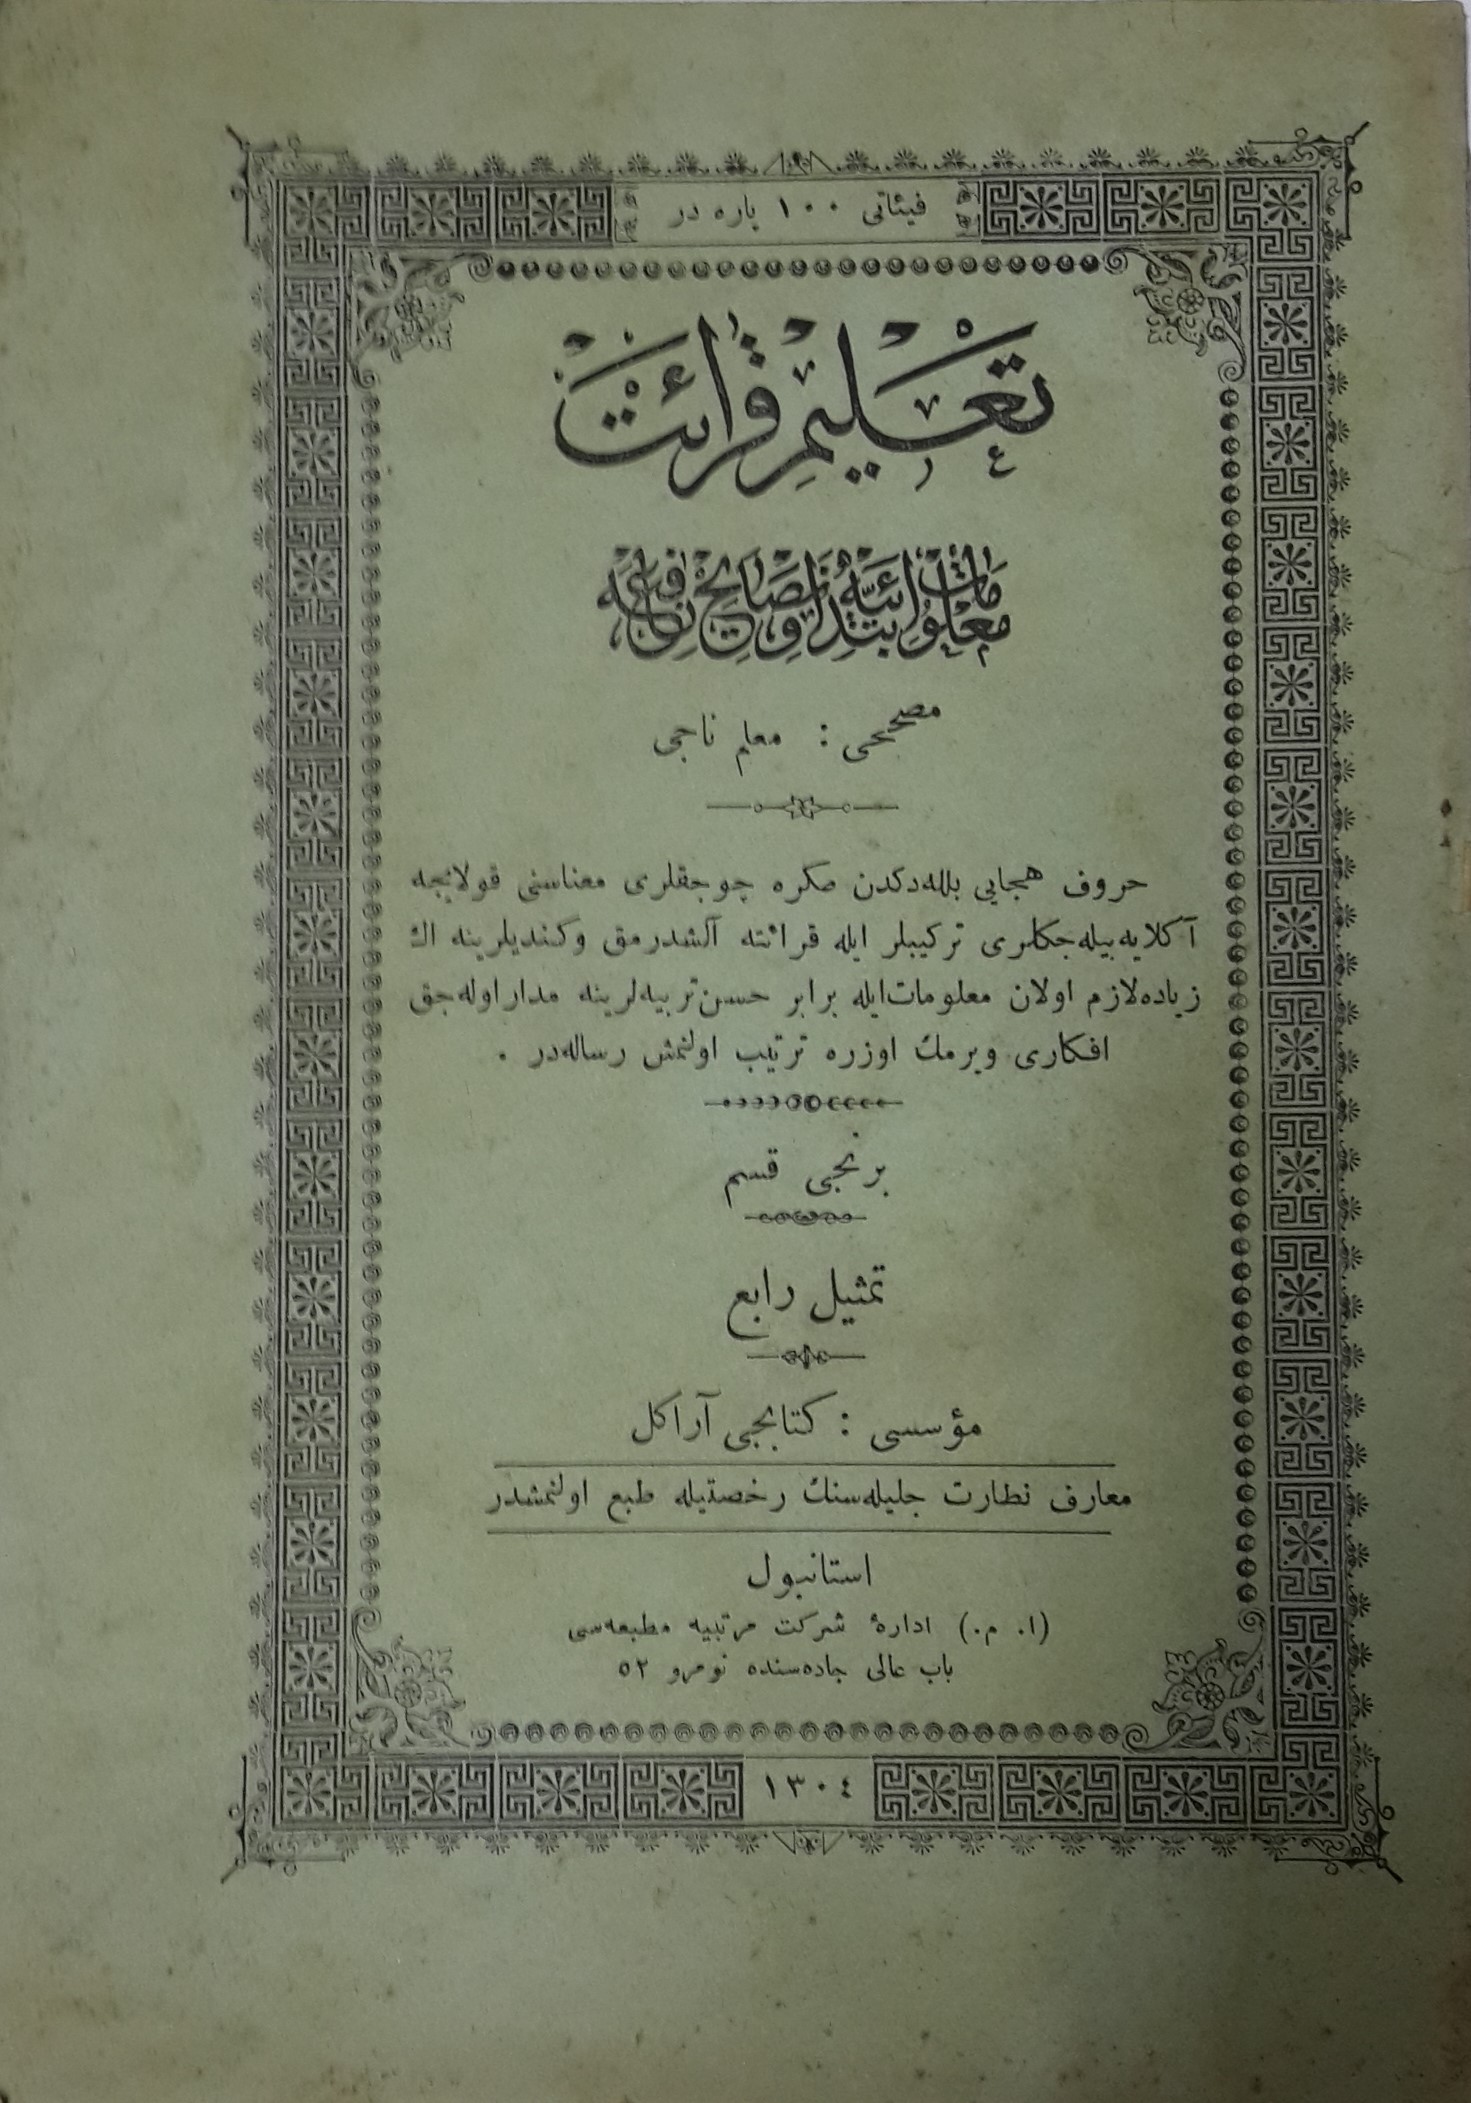 فیئاتی ١٠٠ پاره در
تعلیم قرائت
معلومات ابتدائیه و نصایح نافعه
مصححی : معلم ناجی
حروف هجایی بلله‌دکدن صکره چوجقلری معناسنی قولایجه
آکلایه‌بیله‌جکلری ترکیبلر ایله قرائته آلشدرمق وکندیلرینه اك
زیاده‌لازم اولان معلومات‌ایله برابر حسن‌تربیه‌لرینه مداراوله‌جق
افکاری ویرمك اوزره ترتیب اولنمش رساله‌در .
برنجی قسم
تمثیل رابع
مؤسسی : کتابجی آراکل
معارف نظارت جلیله‌سنك رخصتیله طبع اولنمشدر
استانبول
(ا. م.) ادارۀ شرکت مرتبیه مطبعه‌سی
باب عالی جاده‌سنده نومرو ٥٢
١٣٠٤